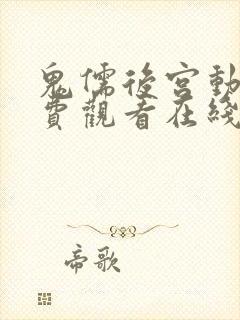 鬼儒後宮動
費觀看在綫
帝歌